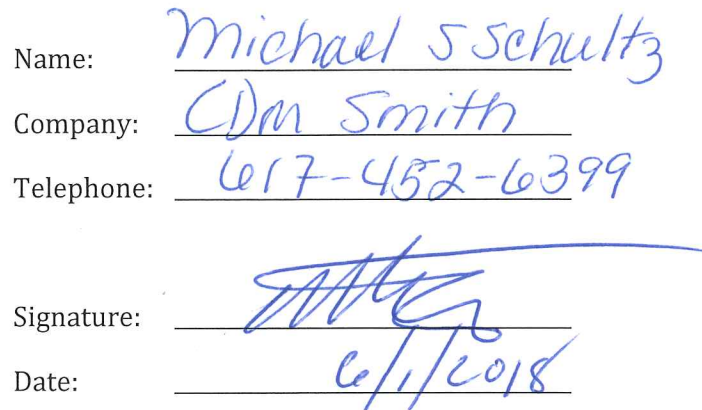 Name: Michael S Schultz
Company: CDM Smith
Telephone: 617-452-6399
Signature:
Date: 6/1/2018